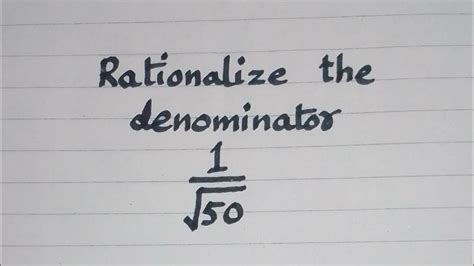 Rationalize the
denominator
1
√50